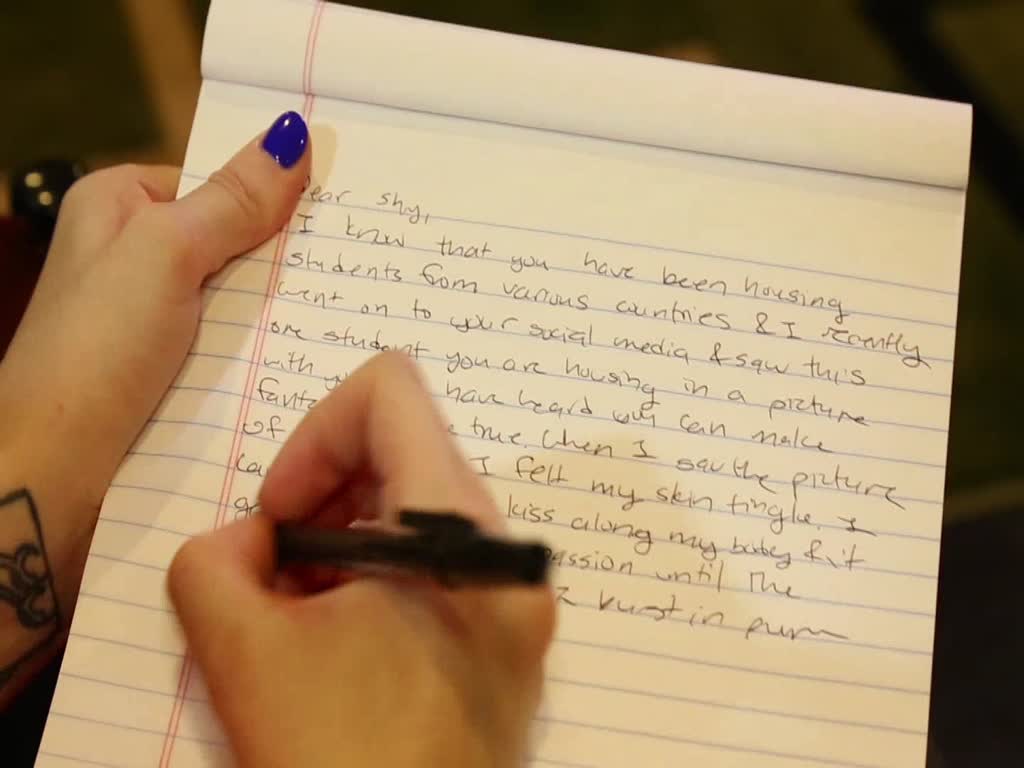 ear shy,
I know that you have been housing
students from various countries & I recently
went on to your social media & saw this
one student you are housing in a picture
with have heard you can make
of true. When I saw the picture
I felt my skin tingle. I
kiss along my body & it
passion until The
burst in